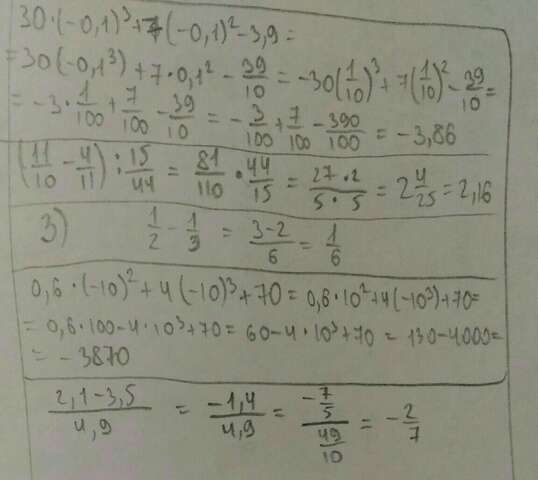 30·(-0,1)³+7(-0,1)²-3,9=
=30(-0,1³)+7·0,1²-39/10=-30(1/10)³+7(1/10)²-39/10=
=-3·1/100+7/100-39/10=-3/100+7/100-390/100=-3,86
(11/10-4/11):15/44=81/110·44/15=27·2/5·5=2 4/25=2,16
3) 1/2-1/3=3-2/6=1/6
0,6·(-10)²+4(-10)³+70=0,6·10²+4(-10³)+70=
=0,6·100-4·10³+70=60-4·10³+70=130-4000=
=-3870
2,1-3,5/4,9=-1,4/4,9=-7/5/49/10=-2/7